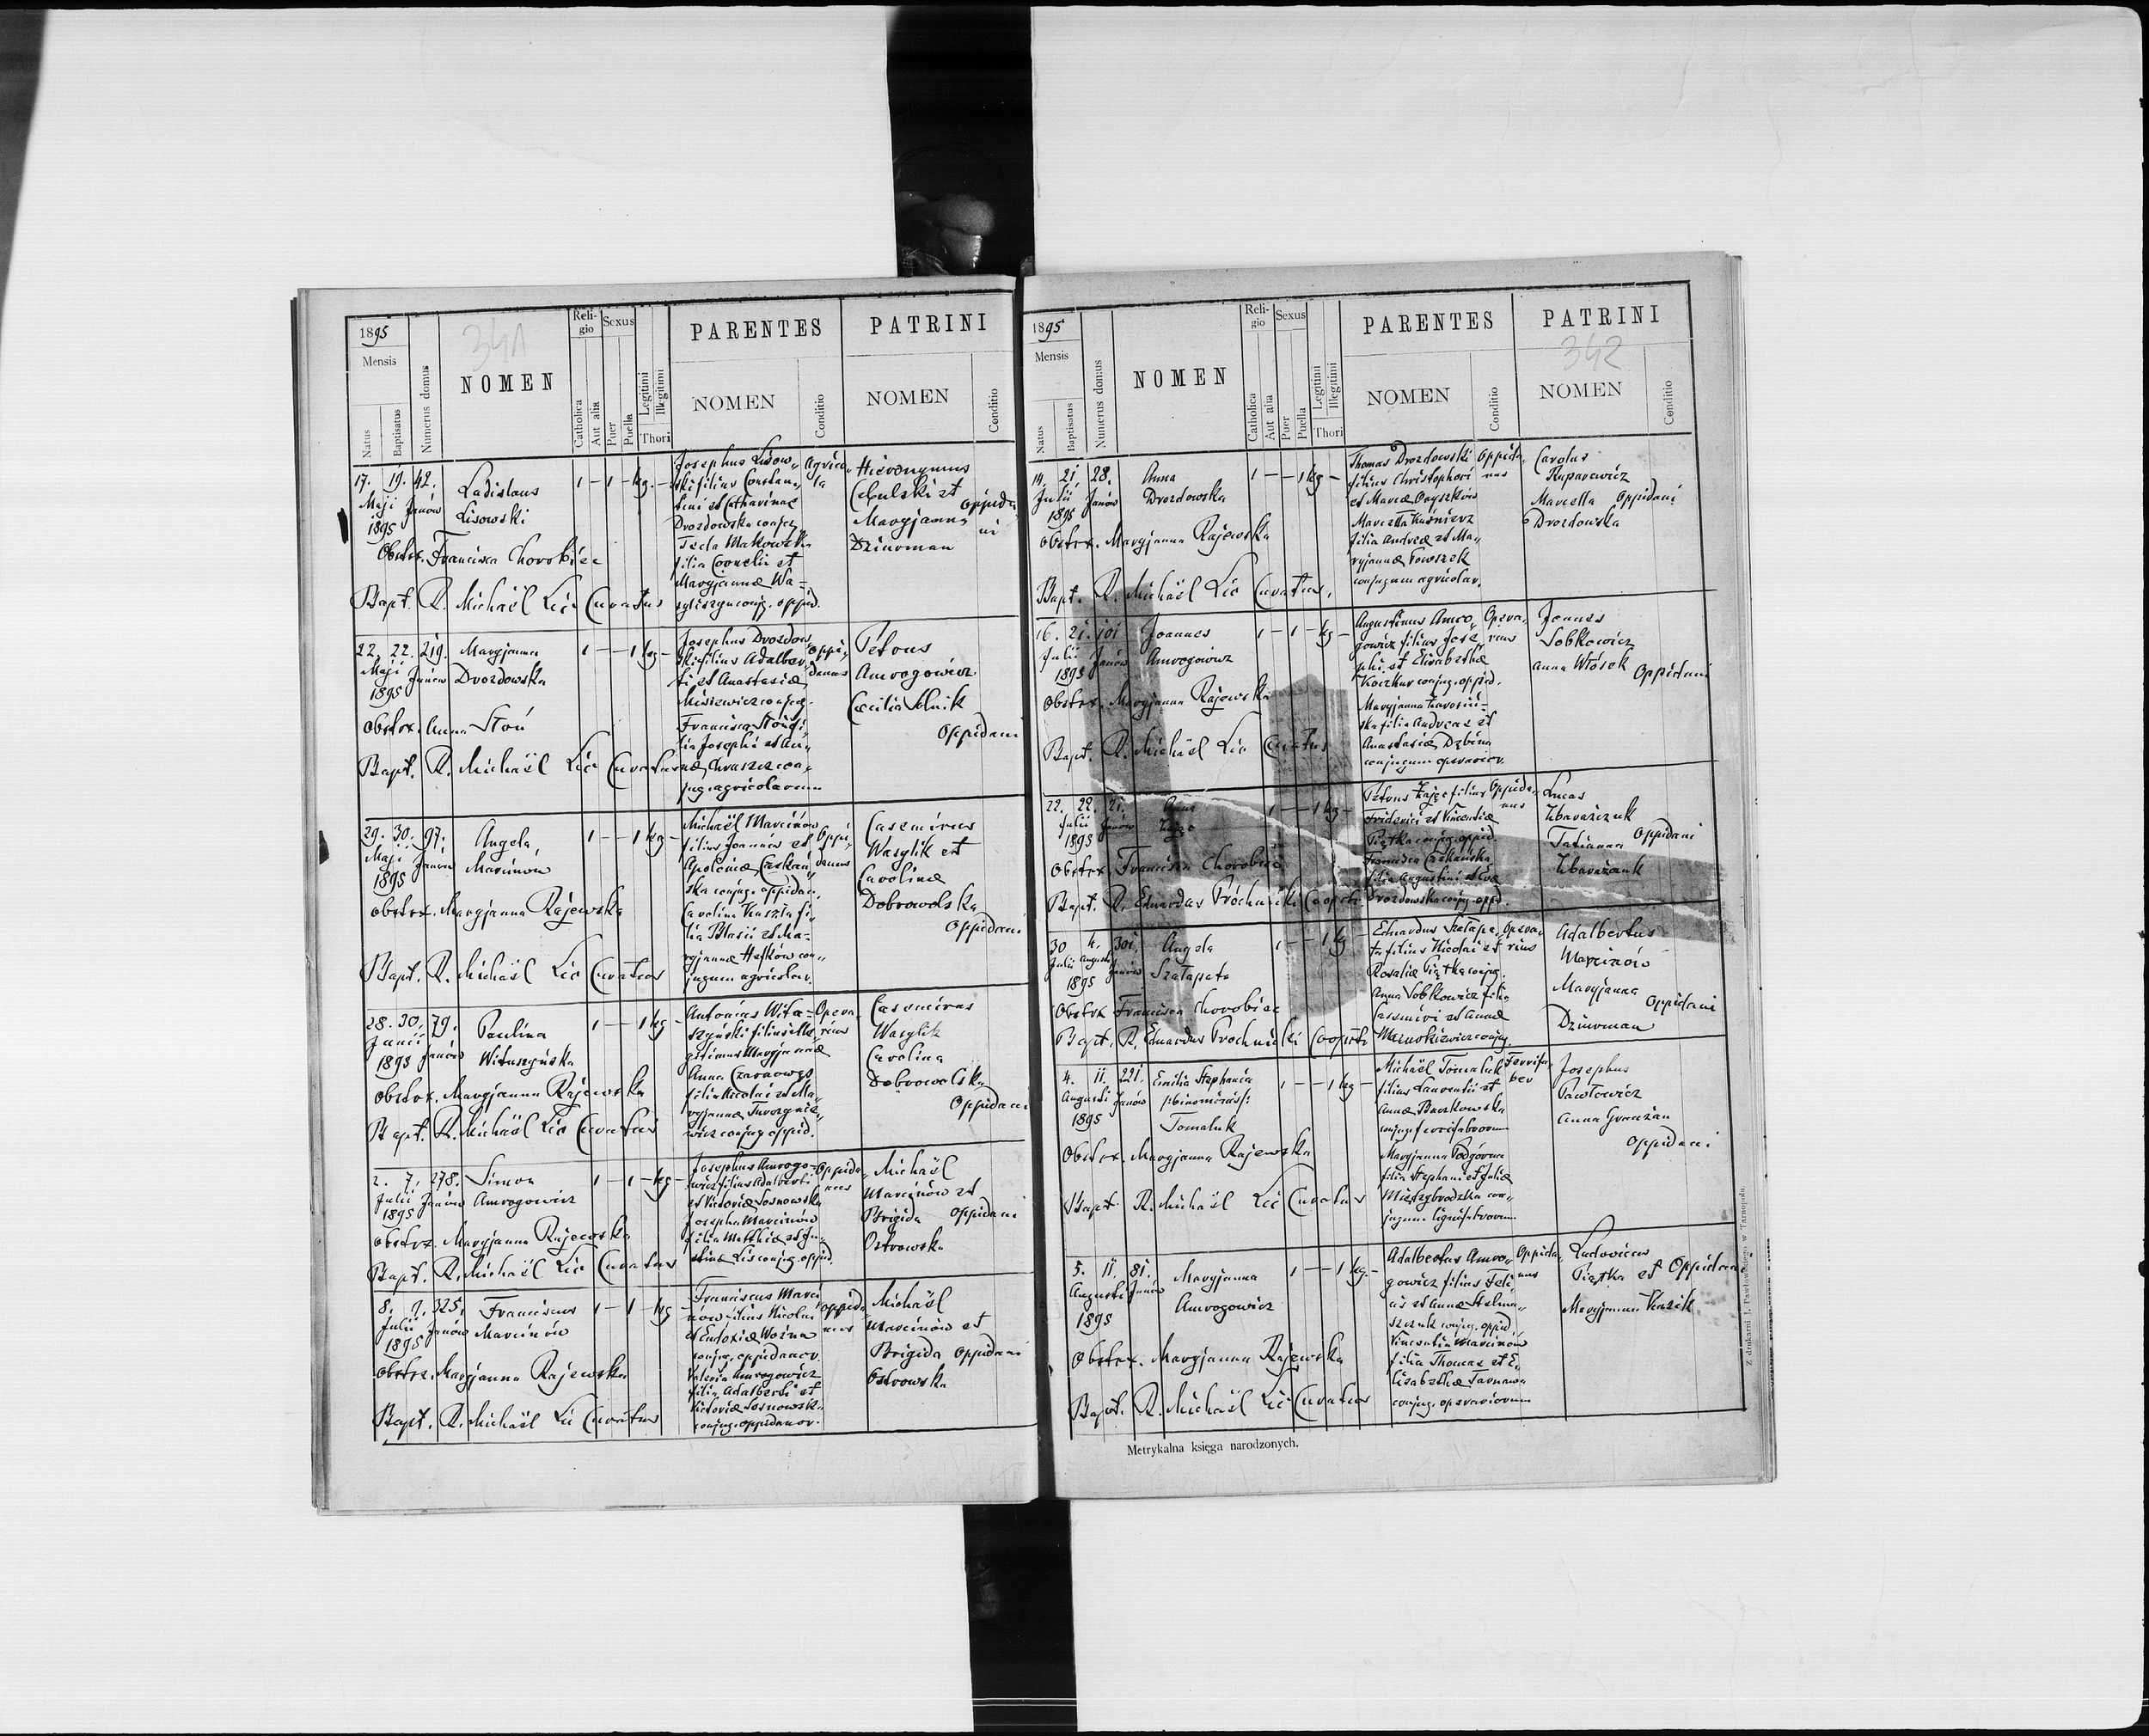 1895
Mensis
Natus
Baptisatus
Numerus domus
341
NOMEN
Reli-
gio
Catholica
Aut alia
Sexus
Puer
Puella
Legitimi
Illegitimi
Thori
PARENTES
NOMEN
Conditio
PATRINI
NOMEN
Conditio
17. 19. 42.
Maji Janów
1895
Ladislaus
Lisowski
1 — 1 — kg. —
Josephus Lisow„
ski filius Constan„
tini et Catharinae
Drozdowska conjug.
Tecla Makowska
filia Cornelii et
Maryjannæ Wa-
conjg. oppid.
Agrico„
la
Hieronymus
Cebulski et
Maryjanna
Dziurman
oppida
ni
Obstrx. Francisca Chorobiec
Bapt. R. Michaël Lic Curatus
22. 22. 219.
Maji Janów
1895
Maryjanna
Drozdowska
1 — — 1 kg —
Josephus Drozdow„
ski filius Adalber„
ti et Anastasiæ
conjug.
Francisca Stoń fi„
lia Josephi et An„
næ Chruszcz con„
jug. agricolarum
Oppi„
danus
Petrus
Amrogowicz
Cæcilia Solnik
Oppidani
Obstrx. Anna Stoń
Bapt. R. Michaël Lic Curatus
29. 30. 97.
Maji Janów
1895
Angela
Marcinów
1 — — 1 kg —
Michaël Marcinów
filius Joannis et
Apoloniæ Czekań„
ska conjug. oppidan.
Carolina Kuszła fi„
lia Blasii et Ma-
ryjannæ Hesków con„
jugum agricolar.
Oppi„
danus
Casemirus
Wasylik et
Carolina
Dobrowolska
Oppidani
Obstrx. Maryjanna Rajewska
Bapt. R. Michaël Lic Curatus
28. 30. 79.
Junii Janów
1895
Paulina
Wituszyńska
1 — — 1 kg —
Antonius Witu-
szyński filius ille„
gitimus Maryjannæ
Anna
filia Nicolai et Ma„
ryjannæ
wicz conjug. oppid.
Opera„
rius
Casemirus
Wasylik
Carolina
Dobrowolska
Oppidani
Obstrx. Maryjanna Rajewska
Bapt. R. Michaël Lic Curatus
2. 7. 278.
Julii Janów
1895
Simon
Amrogowicz
1 — 1 — kg —
Josephus Amrogo-
wicz filius Adalberti
et Victoriæ Sosnowska
Josepha Marcinów
filia Mathiæ et Ju„
stinæ Lis conjug. oppid.
Oppida„
nus
Michaël
Marcinów et
Brigida
Ostrowska
Oppidani
Obstrx. Maryjanna Rajewska
Bapt. R. Michaël Lic Curatus
8. 9. 325.
Julii Janów
1895
Franciscus
Marcinów
1 — 1 — kg —
Franciscus Marci
nów filius Nicolai
et Eudoxiæ Woźna
conjug. oppidanor.
Valeria Amrogowicz
filia Adalberti et
Victoriæ Sosnowska
conjug. oppidanor.
Oppida„
nus
Michaël
Marcinów et
Brigida
Ostrowska
Oppidani
Obstrx. Maryjanna Rajewska
Bapt. R. Michaël Lic Curatus
1895
Mensis
Natus
Baptisatus
Numerus domus
NOMEN
Reli-
gio
Catholica
Aut alia
Sexus
Puer
Puella
Legitimi
Illegitimi
Thori
PARENTES
NOMEN
Conditio
PATRINI
342
NOMEN
Conditio
14. 21. 28.
Julii Janów
1895
Anna
Drozdowska
1 — — 1 kg —
Thomas Drozdowski
filius Christophori
et Mariæ
Marcella Kuśnierz
filia Andreæ et Ma„
ryjannæ Towszek
conjugum agricolar.
Oppida„
nus
Carolus
Marcella
Drozdowska
Oppidani
Obstrx. Maryjanna Rajewska
Bapt. R. Michaël Lic Curatus.
16. 21. 101
Julii Janów
1895
Joannes
Amrogowicz
1 — 1 — kg —
Augustinus Amro„
gowicz filius Jose„
phi et Elisabethæ
Koczkur conjug. oppid.
Maryjanna
ska filia Andreae et
Anastasiæ Dębina
conjugum operarior.
Opera„
rius
Joannes
Sobkowicz
Anna Wtósek
Oppidani
Obstrx. Maryjanna Rajewska
Bapt. R. Michaël Lic Curatus
22. 22. 21.
Julii Janów
1895
Anna
Zając
1 — — 1 kg —
Petrus Zając filius
Friderici et Vincentiæ
Piątka conjug. oppid.
Francisca Czekańska
filia Augustini et Evæ
Drozdowska conjug. oppid.
Oppida„
nus
Lucas
Zbarażczuk
Tatianna
Zbarażczuk
Oppidani
Obstrx. Francisca Chorobiec
Bapt. R. Eduardus Prochnicki Cooprt.
30 4. 301.
Julii Augusti Janów
1895
Angela
Szałapata
1 — — 1 kg
Eduardus Szałapa„
ta filius Nicolai et
Rosaliæ Piątka conjug.
Anna Sobkowicz filia
Casemiri et Annæ
conjug.
Opera„
rius
Adalbertus
Marcinów
Maryjanna
Dziurman
Oppidani
Obstrx Francisca Chorobiec
Bapt. R. Eduardus Prochnicki Cooprt.
4. 11. 221.
Augusti Janów
1895
Emilia Stephania
/:binominis/:
Tomaluk
1 — — 1 kg —
Michaël Tomaluk
filius Laurentii et
Annæ Buczkowska
conjug. ferrifabrorum
Maryjanna Podgórna
filia Stephani et Juliæ
Międzybrodzka con„
jugum lignifabrorum
Ferrifa„
ber
Josephus
Pawłowicz
Anna
Oppidani
Obstrx. Maryjanna Rajewska
Bapt. R. Michaël Lic Curatus
5. 11. 81.
Augusti Janów
1895
Maryjanna
Amrogowicz
1 — — 1 kg. —
Adalbertus Amro„
gowicz filius Feli„
cis et Annæ Stelma„
szczuk conjug. oppid.
Vincentia Marcinów
filia Thomae et E„
lisabethæ Tarnawa
conjug. operariorum
Oppida„
nus
Ludovicus
Piątka et
Maryjanna Kuzik
Oppidani
Obstrx. Maryjanna Rajewska
Bapt. R. Michaël Lic Curatus
Metrykalna księga narodzonych.
Z drukarni J. Pawłowskiego w Tarnopolu